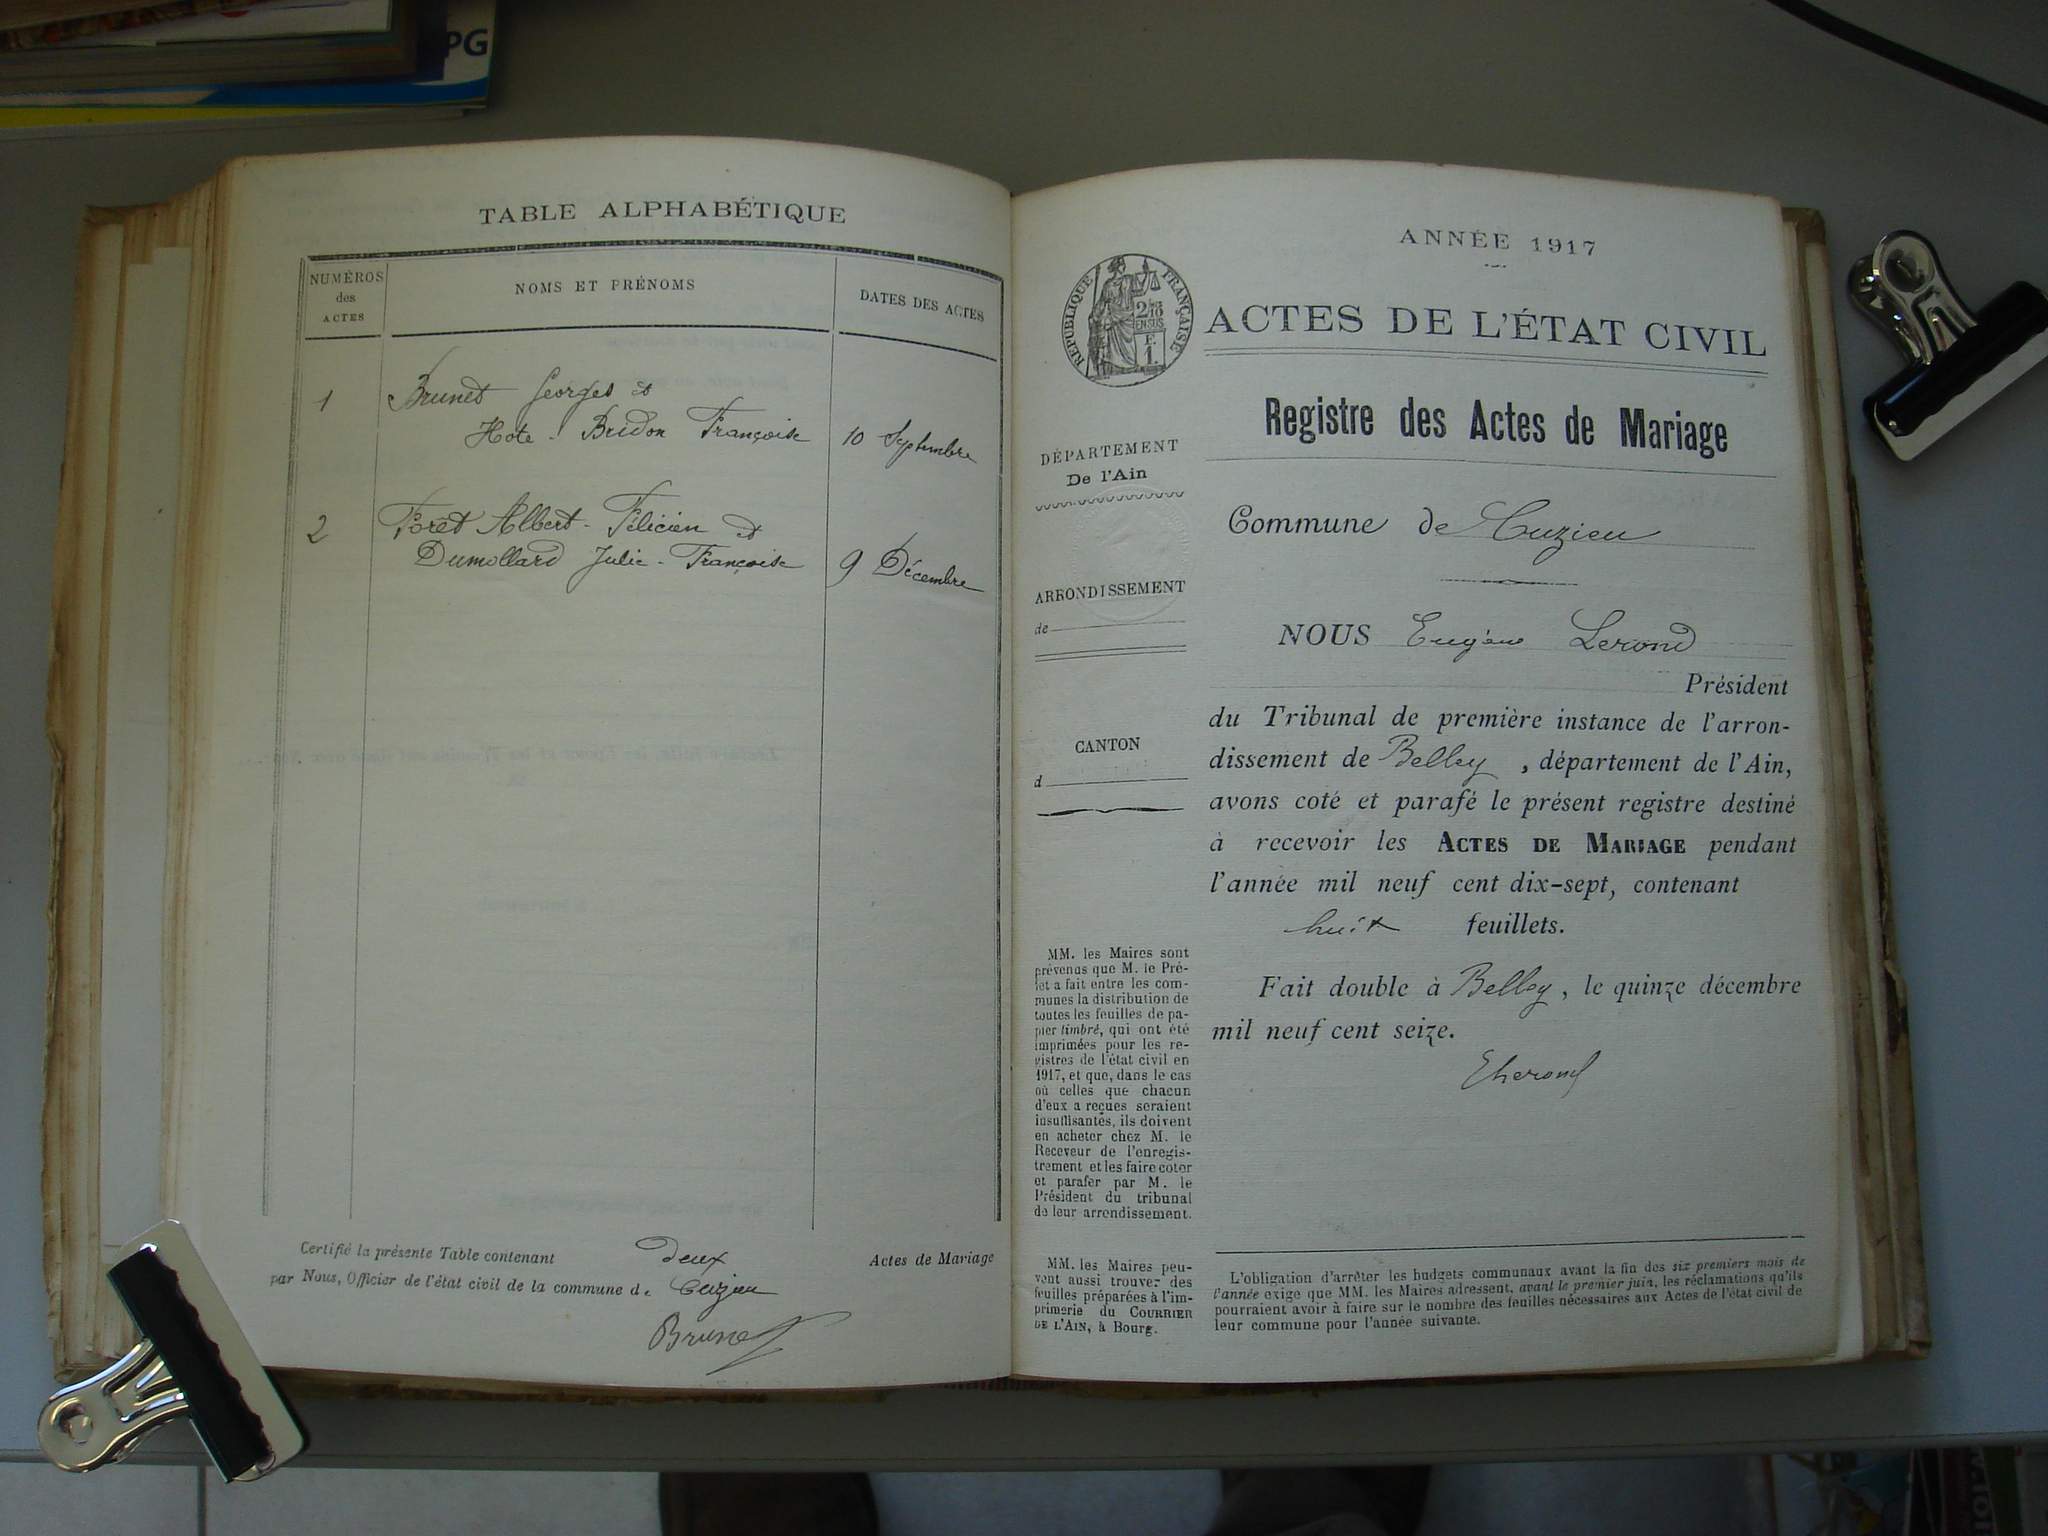 PG
TABLE ALPHABÉTIQUE
NUMÉROS
des
ACTES
NOMS ET PRÉNOMS
DATES DES ACTES
1
Brunet Georges et
Hote - Bridon Françoise
10 Septembre
2
Forêt Albert - Félicien et
Dumollard Julie - Françoise
9 Décembre
Certifié la présente Table contenant deux Actes de Mariage
par Nous, Officier de l'état civil de la commune de Cuzieu
Brunet
ANNÉE 1917
RÉPUBLIQUE FRANÇAISE
ACTES DE L'ÉTAT CIVIL
Registre des Actes de Mariage
DÉPARTEMENT
De l'Ain
ARRONDISSEMENT
de
CANTON
d
MM. les Maires sont
prévenus que M. le Pré-
fet a fait entre les com-
munes la distribution de
toutes les feuilles de pa-
pier timbré, qui ont été
imprimées pour les re-
gistres de l'état civil en
1917, et que, dans le cas
où celles que chacun
d'eux a reçues seraient
insuffisantes, ils doivent
en acheter chez M. le
Receveur de l'enregis-
trement et les faire coter
et parafer par M. le
Président du tribunal
de leur arrondissement.
MM. les Maires peu-
vent aussi trouver des
feuilles préparées à l'im-
primerie du COURRIER
DE L'AIN, à Bourg.
Commune de Cuzieu
NOUS Eugène Lerond
Président
du Tribunal de première instance de l'arron-
dissement de Belley, département de l'Ain,
avons coté et parafé le présent registre destiné
à recevoir les ACTES DE MARIAGE pendant
l'année mil neuf cent dix-sept, contenant
huit feuillets.
Fait double à Belley, le quinze décembre
mil neuf cent seize.
L'obligation d'arrêter les budgets communaux avant la fin des six premiers mois de
l'année exige que MM. les Maires adressent, avant le premier juin, les réclamations qu'ils
pourraient avoir à faire sur le nombre des feuilles nécessaires aux Actes de l'état civil de
leur commune pour l'année suivante.